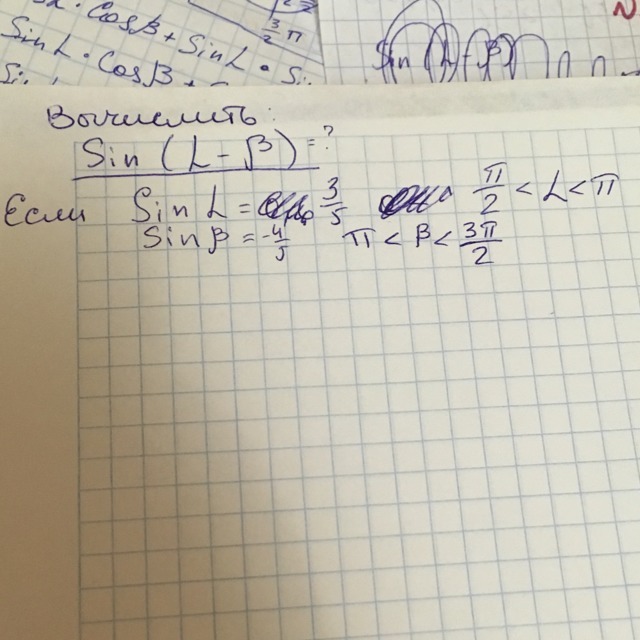 Cosβ + SinL •
3/2 π
SinL • Cosβ +
Sin (L - β)
N
Вычислить:
Sin (L - β) = ?
Если Sin L = 3/5 π/2 < L < π
Sin β = -4/5 π < β < 3π/2